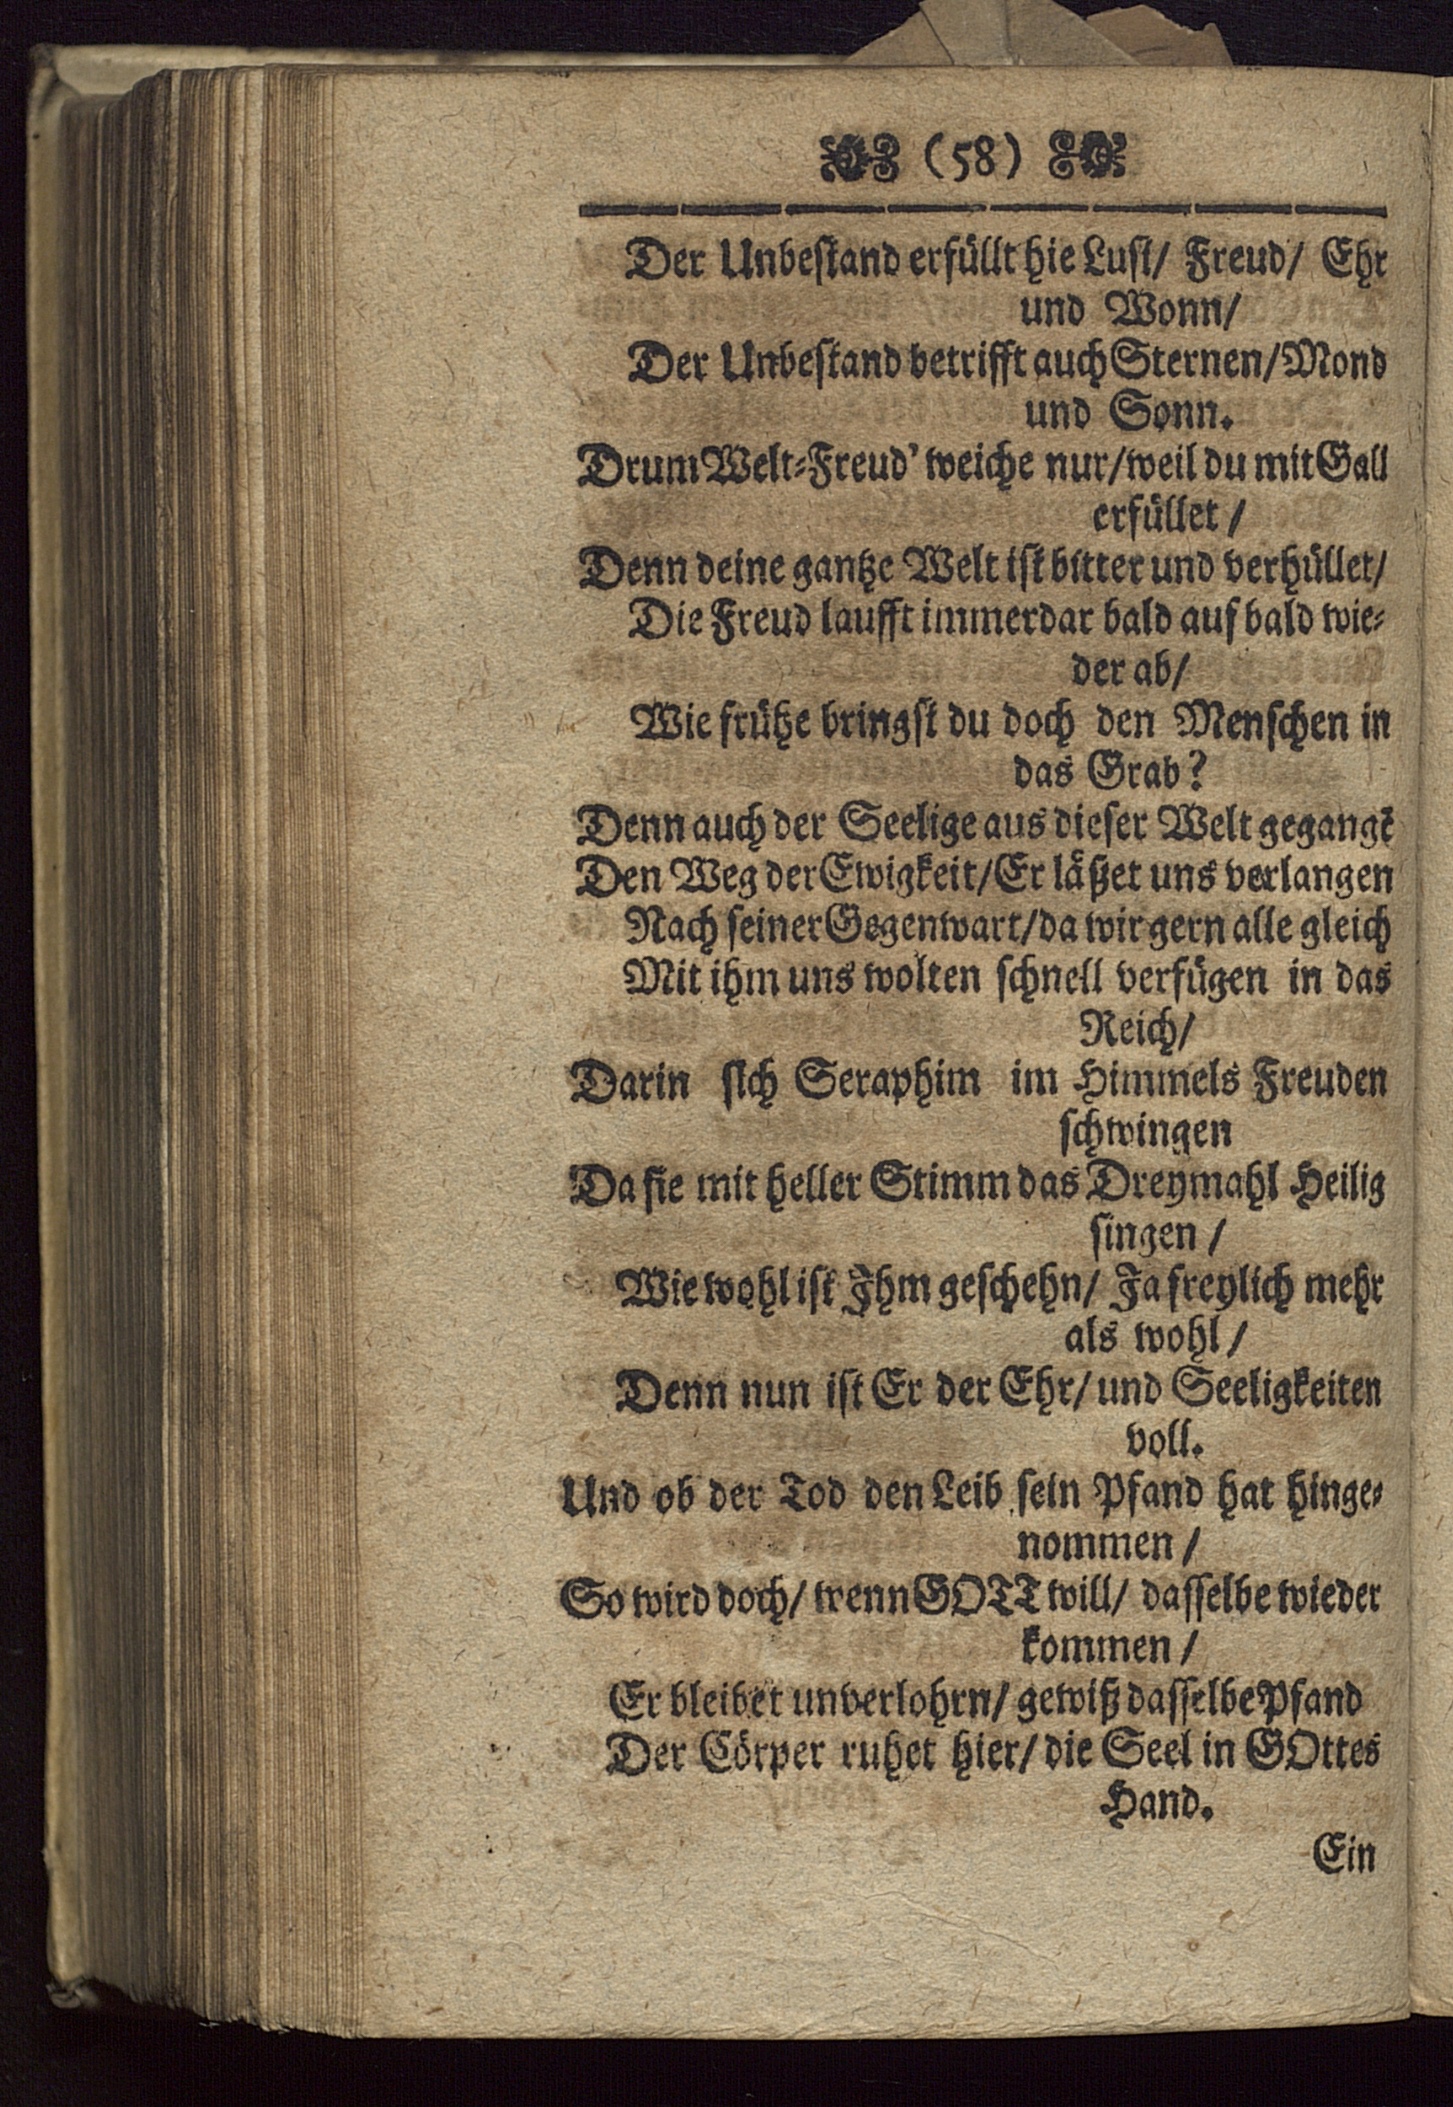 (58)
Der Unbestand erfüllt hie Lust/ Freud/ Ehr
und Wonn/
Der Unbestand betrifft auch Sternen/Mond
und Sonn.
Drum Welt-Freud' weiche nur/weil du mit Gall
erfüllet /
Denn deine gantze Welt ist bitter und verhüllet/
Die Freud laufft immerdar bald auf bald wie-
der ab/
Wie frühe bringst du doch den Menschen in
das Grab?
Denn auch der Seelige aus dieser Welt gegangē
Den Weg der Ewigkeit/Er läßet uns verlangen
Nach seiner Gegenwart/da wir gern alle gleich
Mit ihm uns wolten schnell verfügen in das
Reich/
Darin sich Seraphim im Himmels Freuden
schwingen
Da sie mit heller Stimm das Dreymahl Heilig
singen /
Wie wohl ist Ihm geschehn/ Ja freylich mehr
als wohl /
Denn nun ist Er der Ehr/ und Seeligkeiten
voll.
Und ob der Tod den Leib sein Pfand hat hinge-
nommen /
So wird doch/ wenn GOTT will/ dasselbe wieder
kommen /
Er bleibet unverlohrn/ gewiß dasselbe Pfand
Der Cörper ruhet hier/ die Seel in GOttes
Hand.
Ein